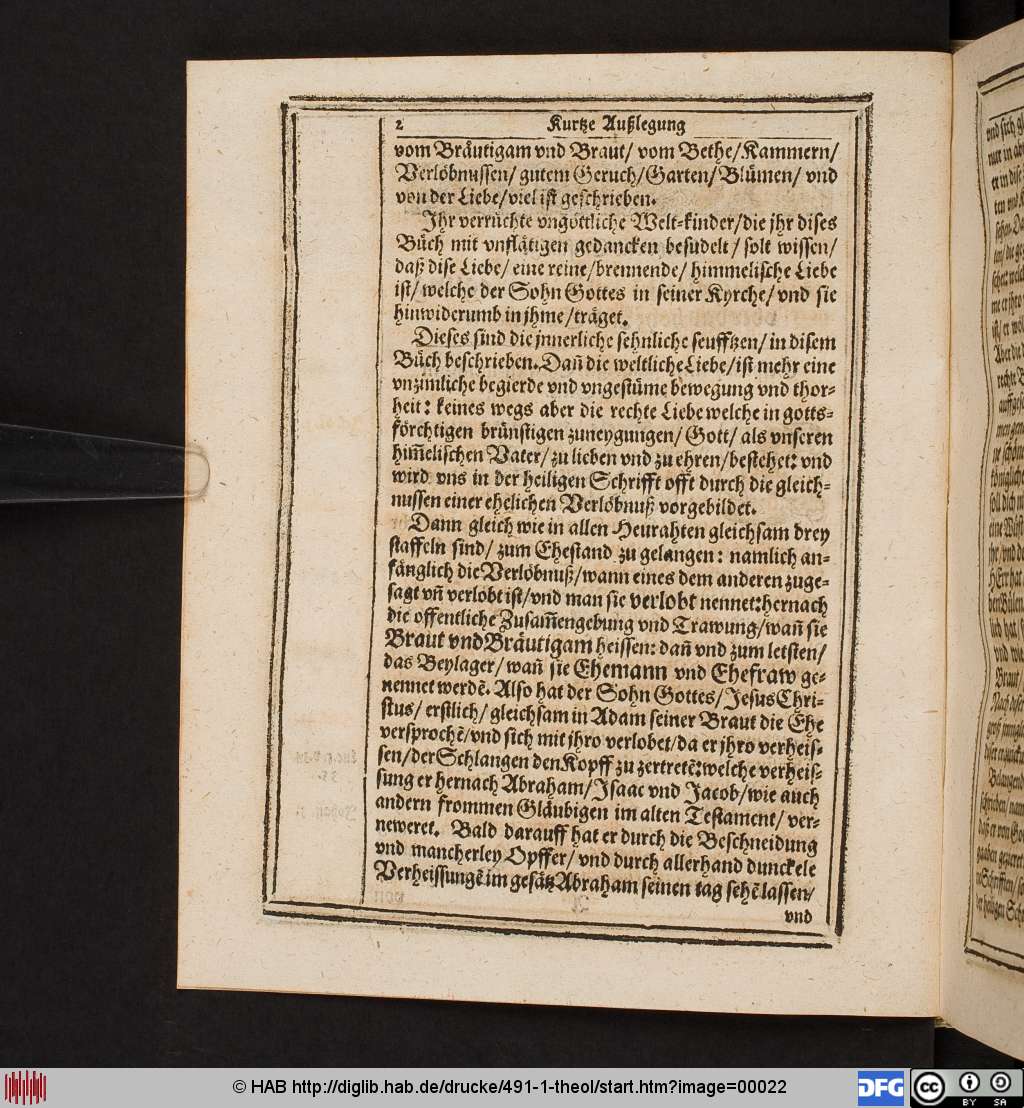 2 Kurtze Außlegung
vom Bräutigam vnd Braut/ vom Bethe/ Kammern/
Verlöbnussen/ gutem Geruch/ Garten/ Blůmen/ vnd
von der Liebe/ viel ist geschrieben.
Ihr verrůchte vngöttliche Welt-kinder/ die jhr dises
Bůch mit vnflätigen gedancken besudelt/ solt wissen/
daß dise Liebe/ eine reine/ brennende/ himmelische Liebe
ist/ welche der Sohn Gottes in seiner Kyrche/ vnd sie
hinwiderumb in jhme/ träget.
Dieses sind die jnnerliche sehnliche seufftzen/ in disem
Bůch beschrieben. Dañ die weltliche Liebe/ ist mehr eine
vnzimliche begierde vnd vngestüme bewegung vnd thor-
heit: keines wegs aber die rechte Liebe welche in gotts-
förchtigen brünstigen zuneygungen/ Gott/ als vnseren
him̃elischen Vater/ zu lieben vnd zu ehren/ bestehet: vnd
wird vns in der heiligen Schrifft offt durch die gleich-
nussen einer ehelichen Verlöbnuß vorgebildet.
Dann gleich wie in allen Heurahten gleichsam drey
staffeln sind/ zum Ehestand zu gelangen: namlich an-
fänglich die Verlöbnuß/ wann eines dem anderen zuge-
sagt vñ verlobt ist/ vnd man sie verlobt nennet: hernach
die offentliche Zusam̃engebung vnd Trawung/ wañ sie
Braut vnd Bräutigam heissen: dañ vnd zum letsten/
das Beylager/ wañ sie Ehemann vnd Ehefraw ge-
nennet werdẽ. Also hat der Sohn Gottes/ Jesus Chri-
stus/ erstlich/ gleichsam in Adam seiner Braut die Ehe
versprochẽ/ vnd sich mit jhro verlobet/ da er jhro verheis-
sen/ der Schlangen den Kopff zu zertretẽ: welche verheis-
sung er hernach Abraham/ Isaac vnd Jacob/ wie auch
andern frommen Gläubigen im alten Testament/ ver-
neweret. Bald darauff hat er durch die Beschneidung
vnd mancherley Opffer/ vnd durch allerhand dunckele
Verheissungẽ im gesätz Abraham seinen tag sehẽ lassen/
vnd
© HAB http://diglib.hab.de/drucke/491-1-theol/start.htm?image=00022
DFG
cc BY SA